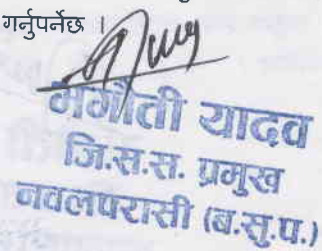 गर्नुपर्नेछ ।
मंगौती यादव
जि.स.स. प्रमुख
नवलपरासी (ब.सु.प.)